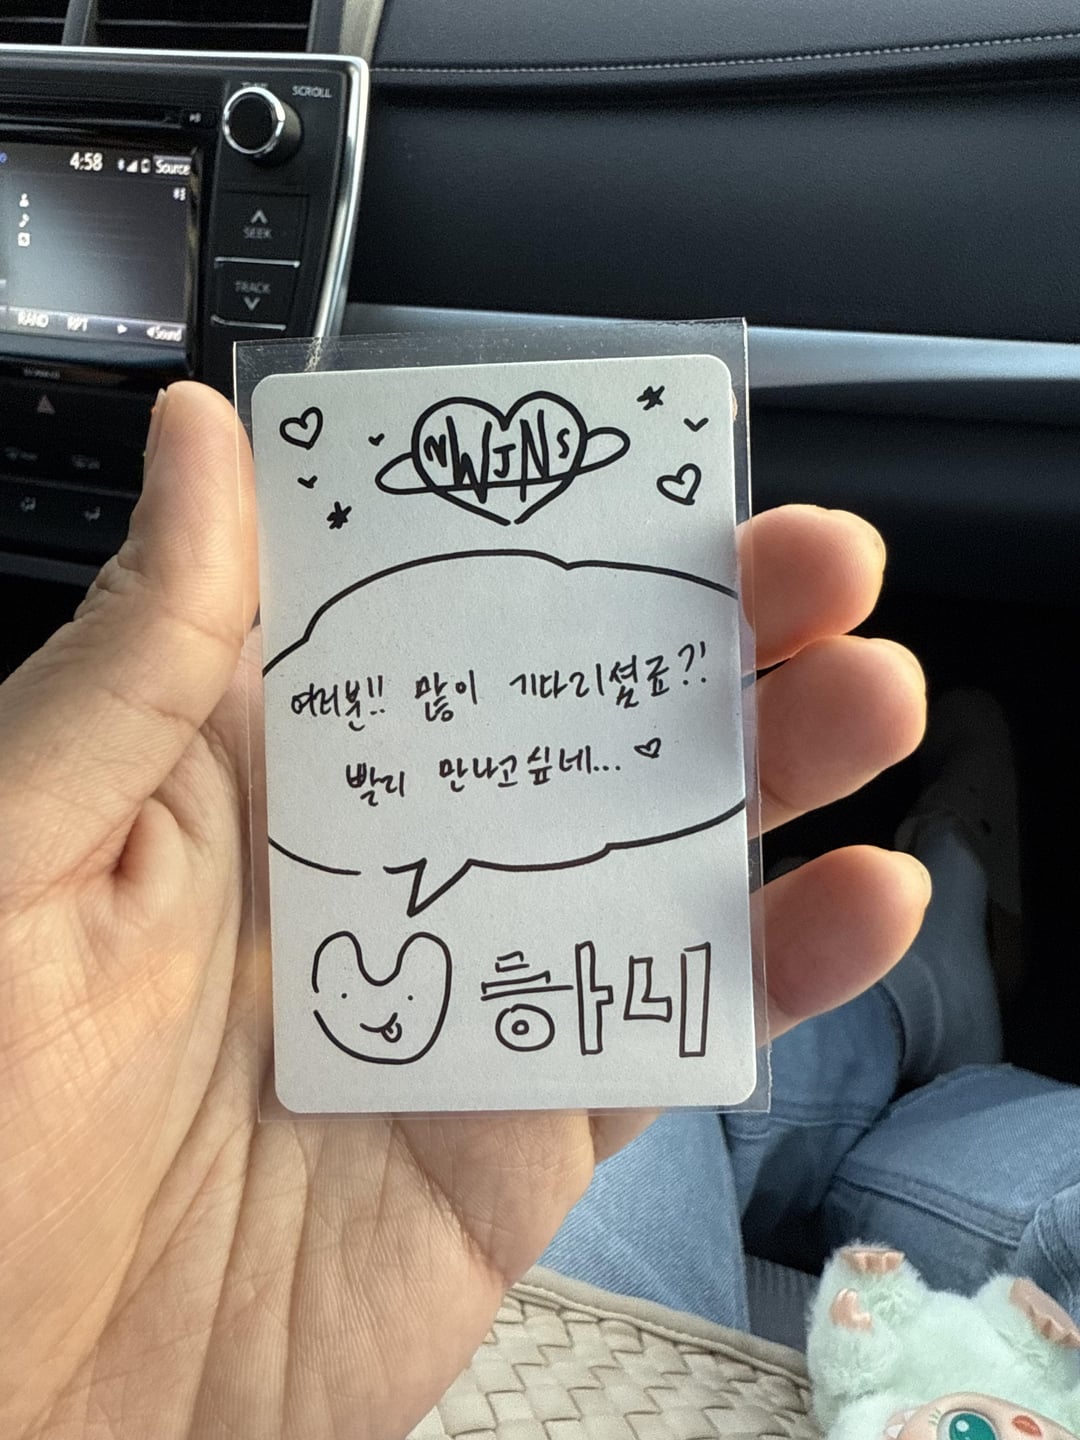 SCROLL
4:58 Source
SEEK
TRACK
RAND RPT Sound
NWJNS
여러분!! 많이 기다리셨죠?!
빨리 만나고싶네...
하니